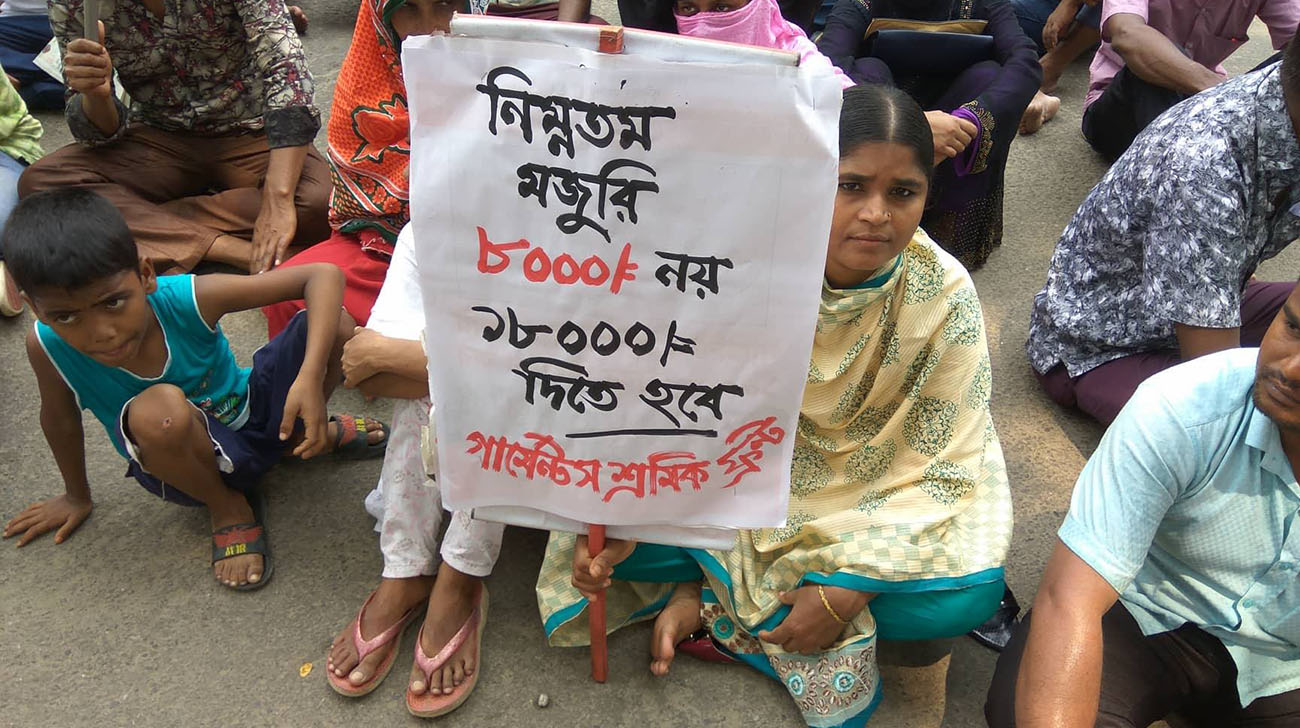 নিম্নতম
মজুরি
৮০০০/= নয়
১৮০০০/=
দিতে হবে
গার্মেন্টস শ্রমিক